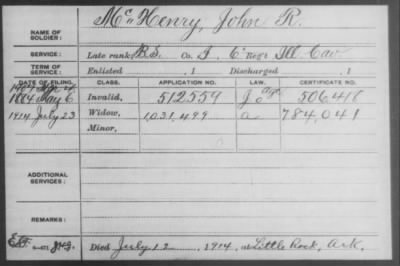 McHenry, John R.
NAME OF
SOLDIER:
SERVICE:
Late rank, B.S. Co. I, 6" Reg't Ill Cav
TERM OF
SERVICE:
Enlisted , 1 Discharged , 1
DATE OF FILING. CLASS. APPLICATION NO. LAW. CERTIFICATE NO.
1884 May 6 Invalid, 512559 506418
1914 July 23 Widow, 1,031,499 784,041
Minor,
ADDITIONAL
SERVICES:
REMARKS:
Died July 12 1914, at Little Rock, Ark.